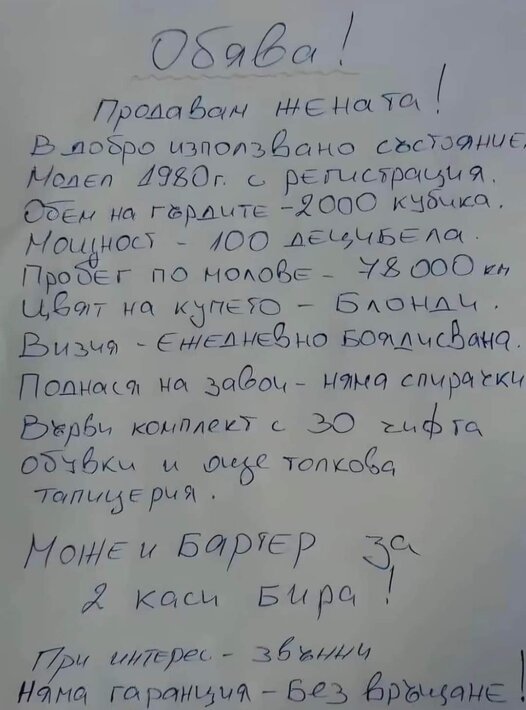 Обява!
Продавам жената!
В добро използвано състояние.
Модел 1980г. с регистрация.
Обем на гърдите - 2000 кубика.
Мощност - 100 децибела.
Пробег по молове - 78000 км
Цвят на купето - Блонди.
Визия - ежедневно боядисвана.
Поднася на завои - няма спирачки
Върви комплект с 30 чифта
обувки и още толкова
тапицерия.
Може и бартер за
2 каси бира!
При интерес - звънни
Няма гаранция - Без връщане!